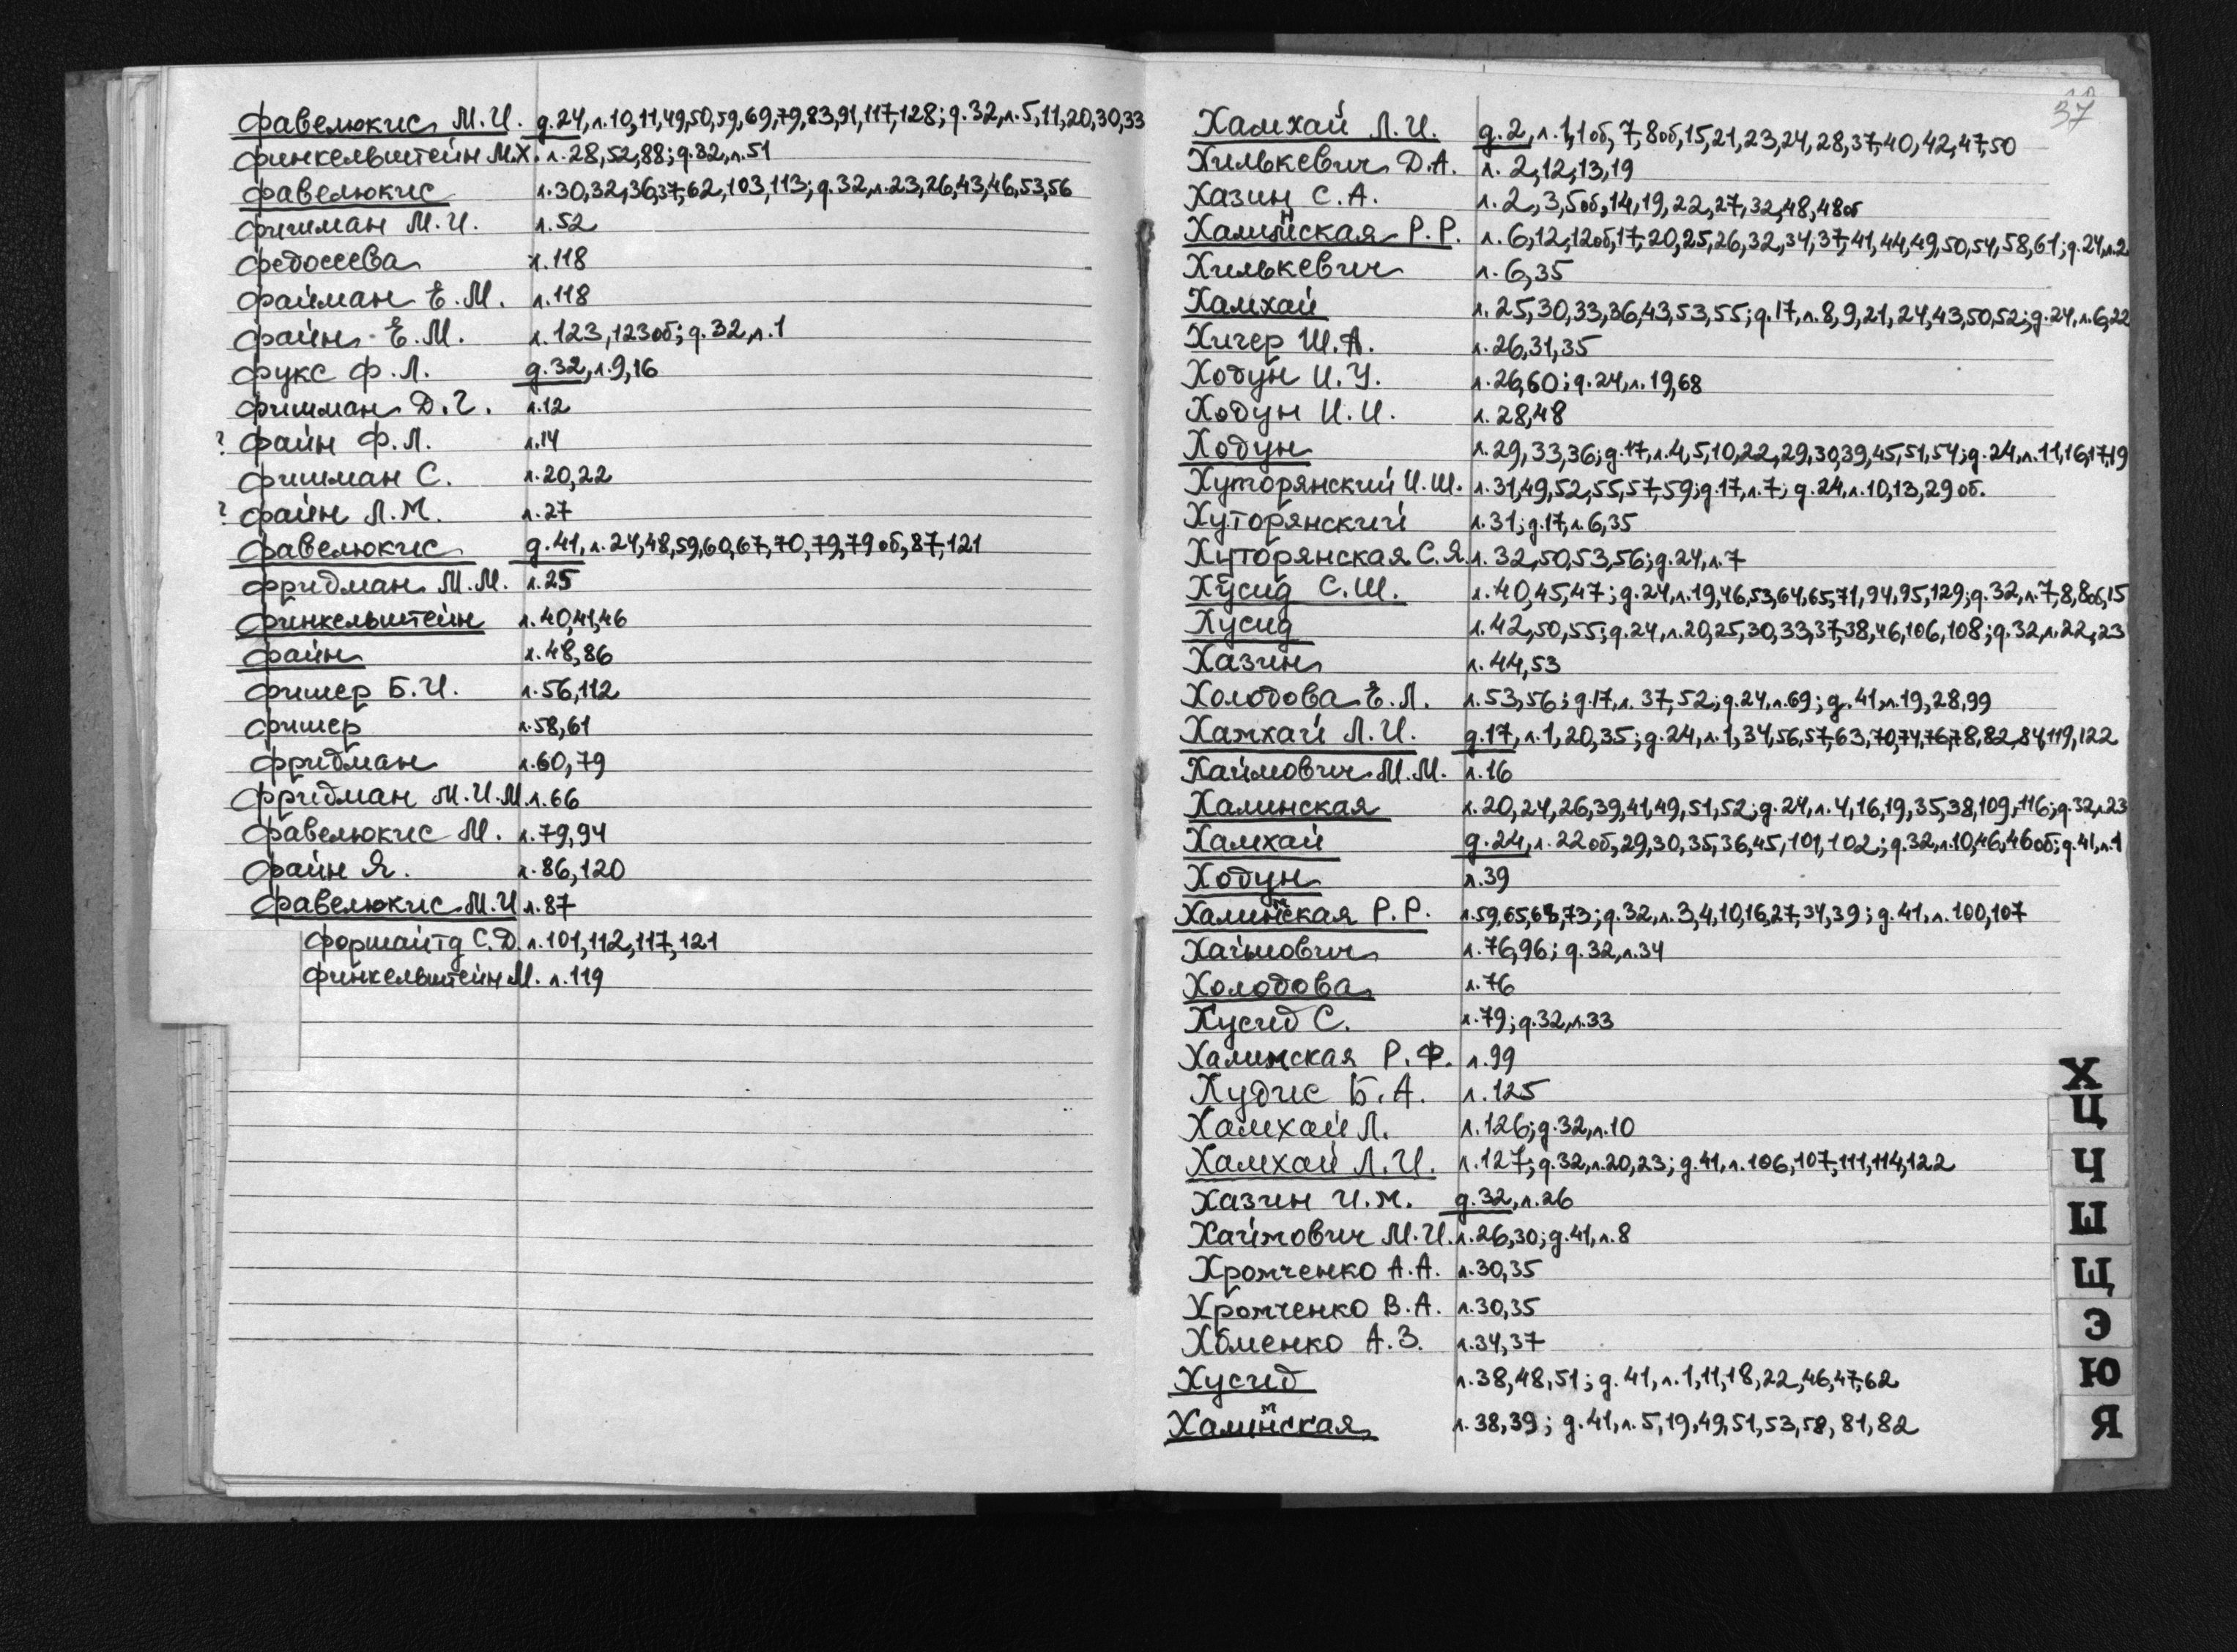 Фавелюкис М.И. д.24, л.10,11,49,50,59,69,79,83,91,117,128; д.32, л.5,11,20,30,33
Финкельштейн М.Х. л.28,52,88; д.32, л.51
Фавелюкис л.30,32,36,37,62,103,113; д.32, л.23,26,43,46,53,56
Фишман М.И. л.52
Федосеева л.118
Файман Е.М. л.118
Файн Е.М. л.123,123об; д.32, л.1
Фукс Ф.Л. д.32, л.9,16
Фишман Д.Г. л.12
? Файн Ф.Л. л.14
Фишман С. л.20,22
? Файн Л.М. л.27
Фавелюкис д.41, л.24,48,59,60,67,70,79,79об,87,121
Фридман М.М. л.25
Финкельштейн л.40,41,46
Файн л.48,86
Фишер Б.И. л.56,112
Фишер л.58,61
Фридман л.60,79
Фридман М.И.М. л.66
Фавелюкис М. л.79,94
Файн Я. л.86,120
Фавелюкис М.И л.87
Форшайтд С.Д. л.101,112,117,121
Финкельштейн М. л.119
37
Хамхай Л.И. д.2, л.1,1об,7,8об,15,21,23,24,28,37,40,42,47,50
Хилькевич Д.А. л.2,12,13,19
Хазин С.А. л.2,3,5об,14,19,22,27,32,48,48об
Халинская Р.Р. л.6,12,12об,17,20,25,26,32,34,37,41,44,49,50,54,58,61; д.24, л.2
Хилькевич л.6,35
Хамхай л.25,30,33,36,43,53,55; д.17, л.8,9,21,24,43,50,52; д.24, л.6,22
Хичер Ш.А. л.26,31,35
Ходун И.У. л.26,60; д.24, л.19,68
Ходун И.И. л.28,48
Ходун л.29,33,36; д.17, л.4,5,10,22,29,30,39,45,51,54; д.24, л.11,16,17,19
Хуторянский И.Ш. л.31,49,52,55,57,59; д.17, л.7; д.24, л.10,13,29об.
Хуторянский л.31; д.17, л.6,35
Хуторянская С.Я. л.32,50,53,56; д.24, л.7
Хусид С.Ш. л.40,45,47; д.24, л.19,46,53,64,65,71,94,95,129; д.32, л.7,8,8об,15
Хусид л.42,50,55; д.24, л.20,25,30,33,37,38,46,106,108; д.32, л.22,23
Хазин л.44,53
Холодова Е.Л. л.53,56; д.17, л.37,52; д.24, л.69; д.41, л.19,28,99
Хамхай Л.И. д.17, л.1,20,35; д.24, л.1,34,56,57,63,70,74,76,78,82,84,119,122
Хаймович М.М. л.16
Халинская л.20,24,26,39,41,49,51,52; д.24, л.4,16,19,35,38,109,116; д.32, л.23
Хамхай д.24, л.22об,29,30,35,36,45,101,102; д.32, л.10,46,46об; д.41, л.1
Ходун л.39
Халинская Р.Р. л.59,65,68,73; д.32, л.3,4,10,16,27,34,39; д.41, л.100,107
Хаймович л.76,96; д.32, л.34
Холодова л.76
Хусид С. л.79; д.32, л.33
Халинская Р.Ф. л.99
Худис Б.А. л.125
Хамхай Л. л.126; д.32, л.10
Хамхай Л.И. л.127; д.32, л.20,23; д.41, л.106,107,111,114,122
Хазин И.М. д.32, л.26
Хаймович М.И. л.26,30; д.41, л.8
Хромченко А.А. л.30,35
Хромченко В.А. л.30,35
Хоменко А.З. л.34,37
Хусид л.38,48,51; д.41, л.1,11,18,22,46,47,62
Халинская л.38,39; д.41, л.5,19,49,51,53,58,81,82
Х
Ц
Ч
Ш
Щ
Э
Ю
Я